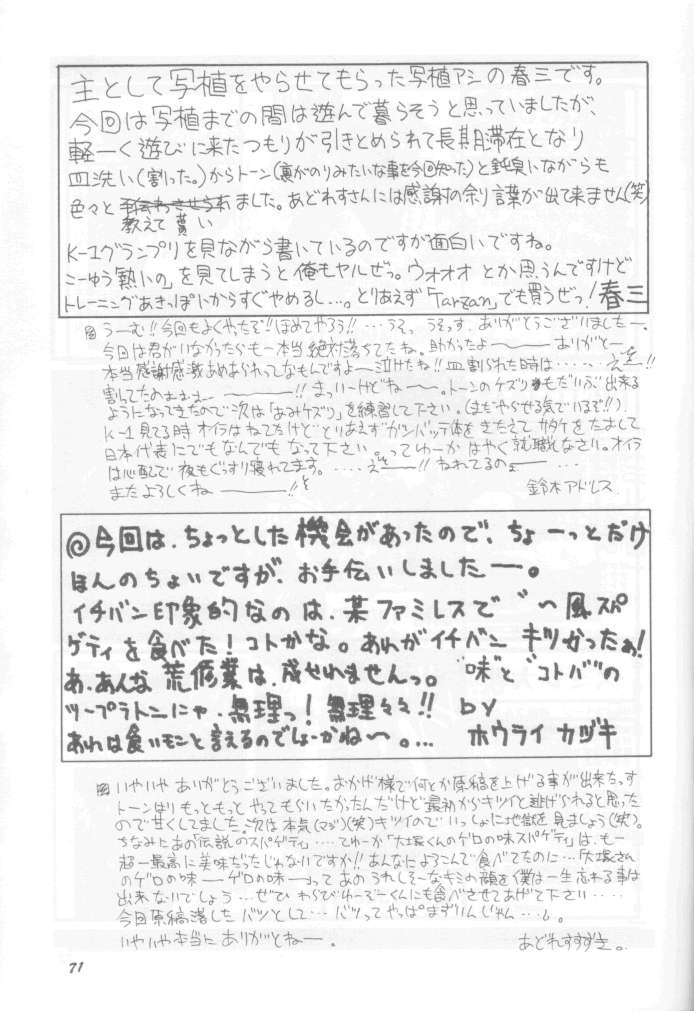 主として写植をやらせてもらった写植アシの春三です。
今回は写植までの間は遊んで暮らそうと思っていましたが、
軽ーく遊びに来たつもりが引きとめられて長期滞在となり
皿洗い(割った。)からトーン(裏がのりみたいな事を今回知った)と鈍臭いながらも
色々と教えて貰いました。あどれすさんには感謝の余り言葉が出て来ません(笑)
K-1グランプリを見ながら書いているのですが面白いですね。
こーゆう「熱いの」を見てしまうと俺もヤルぜっ。ウォオオ とか思うんですけど
トレーニングあきっぽいからすぐやめるし…。とりあえず「Tarzan」でも買うぜっ!春三
うーむ!!今回もよくやったで!!ほめてやろう!!…うそ。うそっす。ありがとうございましたー。
今回は君がいなかったらもー本当絶対落ちてたね。助かったよー ありがとー
本当感謝感激あめあられってなもんですよー泣けたね!!皿割られた時は……え!!
割してたのまままぇ ー!!まっいーけどねー。トーンのケズリもだいぶ出来る
ようになってきたので次は「あみケズリ」を練習して下さい。(まだやらせる気でいるぞ!!)
K-1見てる時オイラはねてたけどとりあえずガンバッテ体をきたえてサタケをたおして
日本代表にでもなんでもなって下さい。ってゆーかはやく就職しなさい。オイラ
は心配で夜もぐっすり寝れてます。……え!!ねれてるのよー…
またよろしくねー!!
鈴木アドレス
◎今回は、ちょっとした機会があったので、ちょーっとだけ
ほんのちょいですが、お手伝いしましたー。
イチバン印象的なのは、某ファミレスで〃〜風スパ
ゲティを食べた!コトかな。あれがイチバン キツかったぁ!
あ、あんな荒修業は、成せれませんっ。"味"と"コトバ"の
ツープラトンにゃ、無理っ!無理々々!! by
あれは食いモンと言えるのでしょーかね〜。… ホウライ カヅキ
いやいやありがとうございました。おかげ様で何とか原稿を上げる事が出来たっす
トーンはりもっともっとやってもらいたかったんだけど最初からキツイと逃げられると思った
ので甘くしてました。次は本気(マジ)(笑)キツイのでいっしょに地獄を見ましょう(笑)。
ちなみにあの伝説のスパゲティ……てゆーか「大塚くんのゲロの味スパゲティ」は、もー
超ー最高に美味だったじゃないですか!!あんなによろこんで食べてたのに…「大塚さん
のゲロの味ーゲロの味ー」ってあのうれしそーなキミの顔を僕は一生忘れる事は
出来ないでしょう…ぜひわらびゆーぞーくんにも食べさせてあげて下さい……
今回原稿落したバツとして…バツってやっぱまずいんじゃん…。
いやいや本当にありがとねー。
あどれすすずき。
71